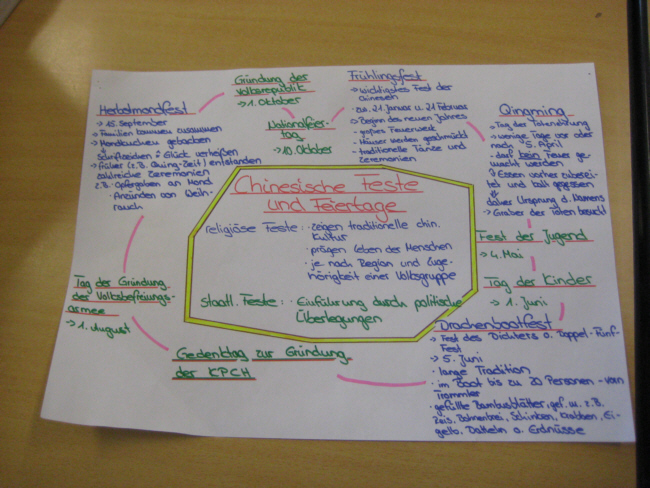 Chinesische Feste
und Feiertage
religiöse Feste: · zeigen traditionelle chin.
Kultur
· prägen Leben der Menschen
· je nach Region und Zuge-
hörigkeit einer Volksgruppe
staatl. Feste: · Einführung durch politische
Überlegungen
Gründung der
Volksrepublik
→ 1. Oktober
Nationalfeier-
tag
→ 10. Oktober
Frühlingsfest
→ wichtigstes Fest der
Chinesen
· zw. 21. Januar u. 21 Februar
· Beginn des neuen Jahres
· großes Feuerwerk
· Häuser werden geschmückt
· traditionelle Tänze und
Zeremonien
Qingming
→ Tag der Totenehrung
→ wenige Tage vor oder
nach 5. April
· darf kein Feuer ge-
macht werden
Essen vorher zuberei-
tet und kalt gegessen
daher Ursprung d. Namens
→ Gräber der Toten besucht
Fest der Jugend
→ 4. Mai
Tag der Kinder
→ 1. Juni
Drachenbootfest
→ Fest des Dichters o. Doppel-Fünf-
Fest
→ 5. Juni
· lange Tradition
· im Boot bis zu 20 Personen - vorn
Trommler
· gefüllte Bambusblätter, gef. m. z.B.
Reis, Bohnenbrei, Schinken, Krabben, Ei-
gelb, Datteln o. Erdnüsse
Gedenktag zur Gründung
der KPCH
Tag der Gründung
der Volksbefreiungs-
armee
→ 1. August
Herbstmondfest
→ 15. September
→ Familien kommen zusammen
→ Mondkuchen gebacken
Schriftzeichen: Glück verheißen
→ früher (z.B. Quing-Zeit) entstanden
zahlreiche Zeremonien
z.B. · Opfergaben an Mond
· Anzünden von Weih-
rauch